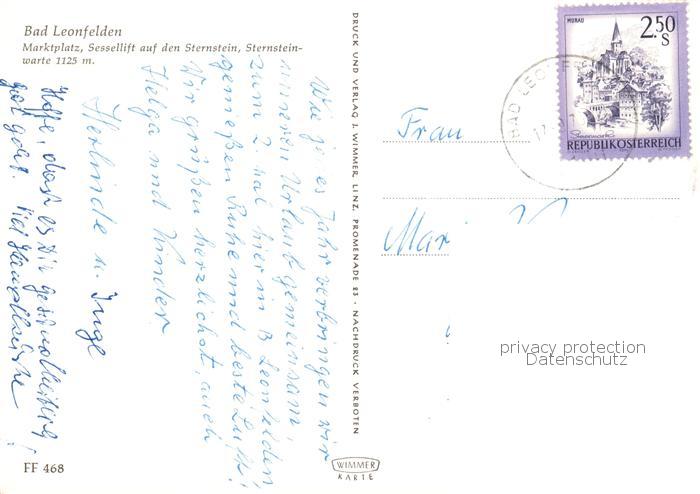 Bad Leonfelden
Marktplatz, Sessellift auf den Sternstein, Sternstein-
warte 1125 m.
Wie jedes Jahr verbringen wir
unseren Urlaub gemeinsam,
zum 2. mal hier in B. Leonfelden
genießen Ruhe und beste Luft!
Wir grüßen herzlichst, auch
Helga und Kinder
Herlinde u. Inge
Hoffe, daß es Dir gesundheitlich
gut geht.
FF 468
DRUCK UND VERLAG J. WIMMER, LINZ, PROMENADE 23 · NACHDRUCK VERBOTEN
WIMMER
KARTE
Frau
Mari
MURAU
2.50
S
Steiermark
REPUBLIK ÖSTERREICH
BAD LEONF
privacy protection
Datenschutz